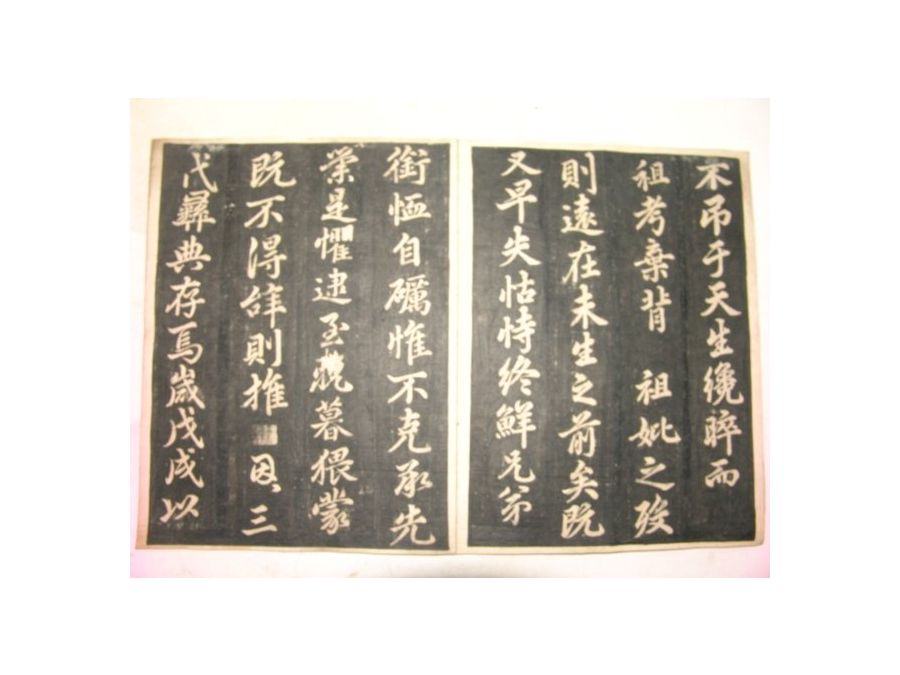 不吊于天生纔晬而
祖考棄背 祖妣之歿
則遠在未生之前矣既
又早失怙恃終鮮兄弟
銜恤自礪惟不克承先
業是懼逮至晚暮猥蒙
既不得辭則推恩三
代彝典存焉歲戊戌以